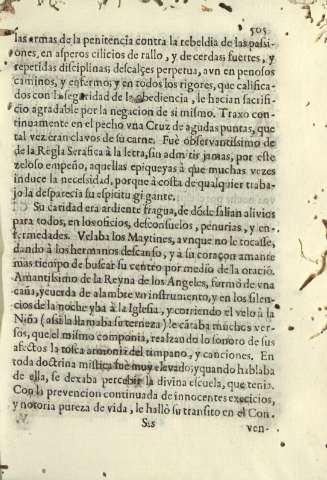 505
las armas de la penitencia contra la rebeldia de las passi-
ones, en asperos cilicios de rallo, y de cerdas; fuertes, y
repetidas disciplinas; descalçes perpetua, avn en penosos
caminos, y enfermo; y en todos los rigores, que califica-
dos con la seguridad de la obediencia, le hacian sacrifi-
cio agradable por la negacion de si mismo. Traxo con-
tinuamente en el pecho vna Cruz de agudas puntas, que
tal vez eran clavos de su carne. Fuè observantissimo de
de la Regla Serafica à la letra, sin admitir jamas, por este
zeloso empeño, aquellas epiqueyas à que muchas vezes
induce la necessidad, porque à costa de qualquier traba-
jo la despatecia su espiritu gigante.
Su caridad era ardiente fragua, de dõde salian alivios
para todos, en los oficios, desconsuelos, penurias, y en-
fermedades. Velaba los Maytines, avnque no le tocasse,
dando à los hermanos descanso, y à su coraçon amante
mas tiempo de buscar su centro por medio de la oraciõ.
Amantissimo de la Reyna de los Angeles, formò de vna
caña, y cuerda de alambre vn instrumento, y en los silen-
cios de la noche yba à la Iglesia, y corriendo el velo à la
Niña (assi la llamaba su terneza) le cãtaba muchos ver-
sos, que el mismo componia, realzando lo sonoro de sus
afectos la tosca armonia del timpano, y canciones. En
toda doctrina mistica fuè muy elevado; y quando hablaba
de ella, se dexaba percebir la divina escuela, que tenia.
Con la prevencion continuada de innocentes exercicios,
y notoria pureza de vida, le hallò su transito en el Con-
Sss
ven-